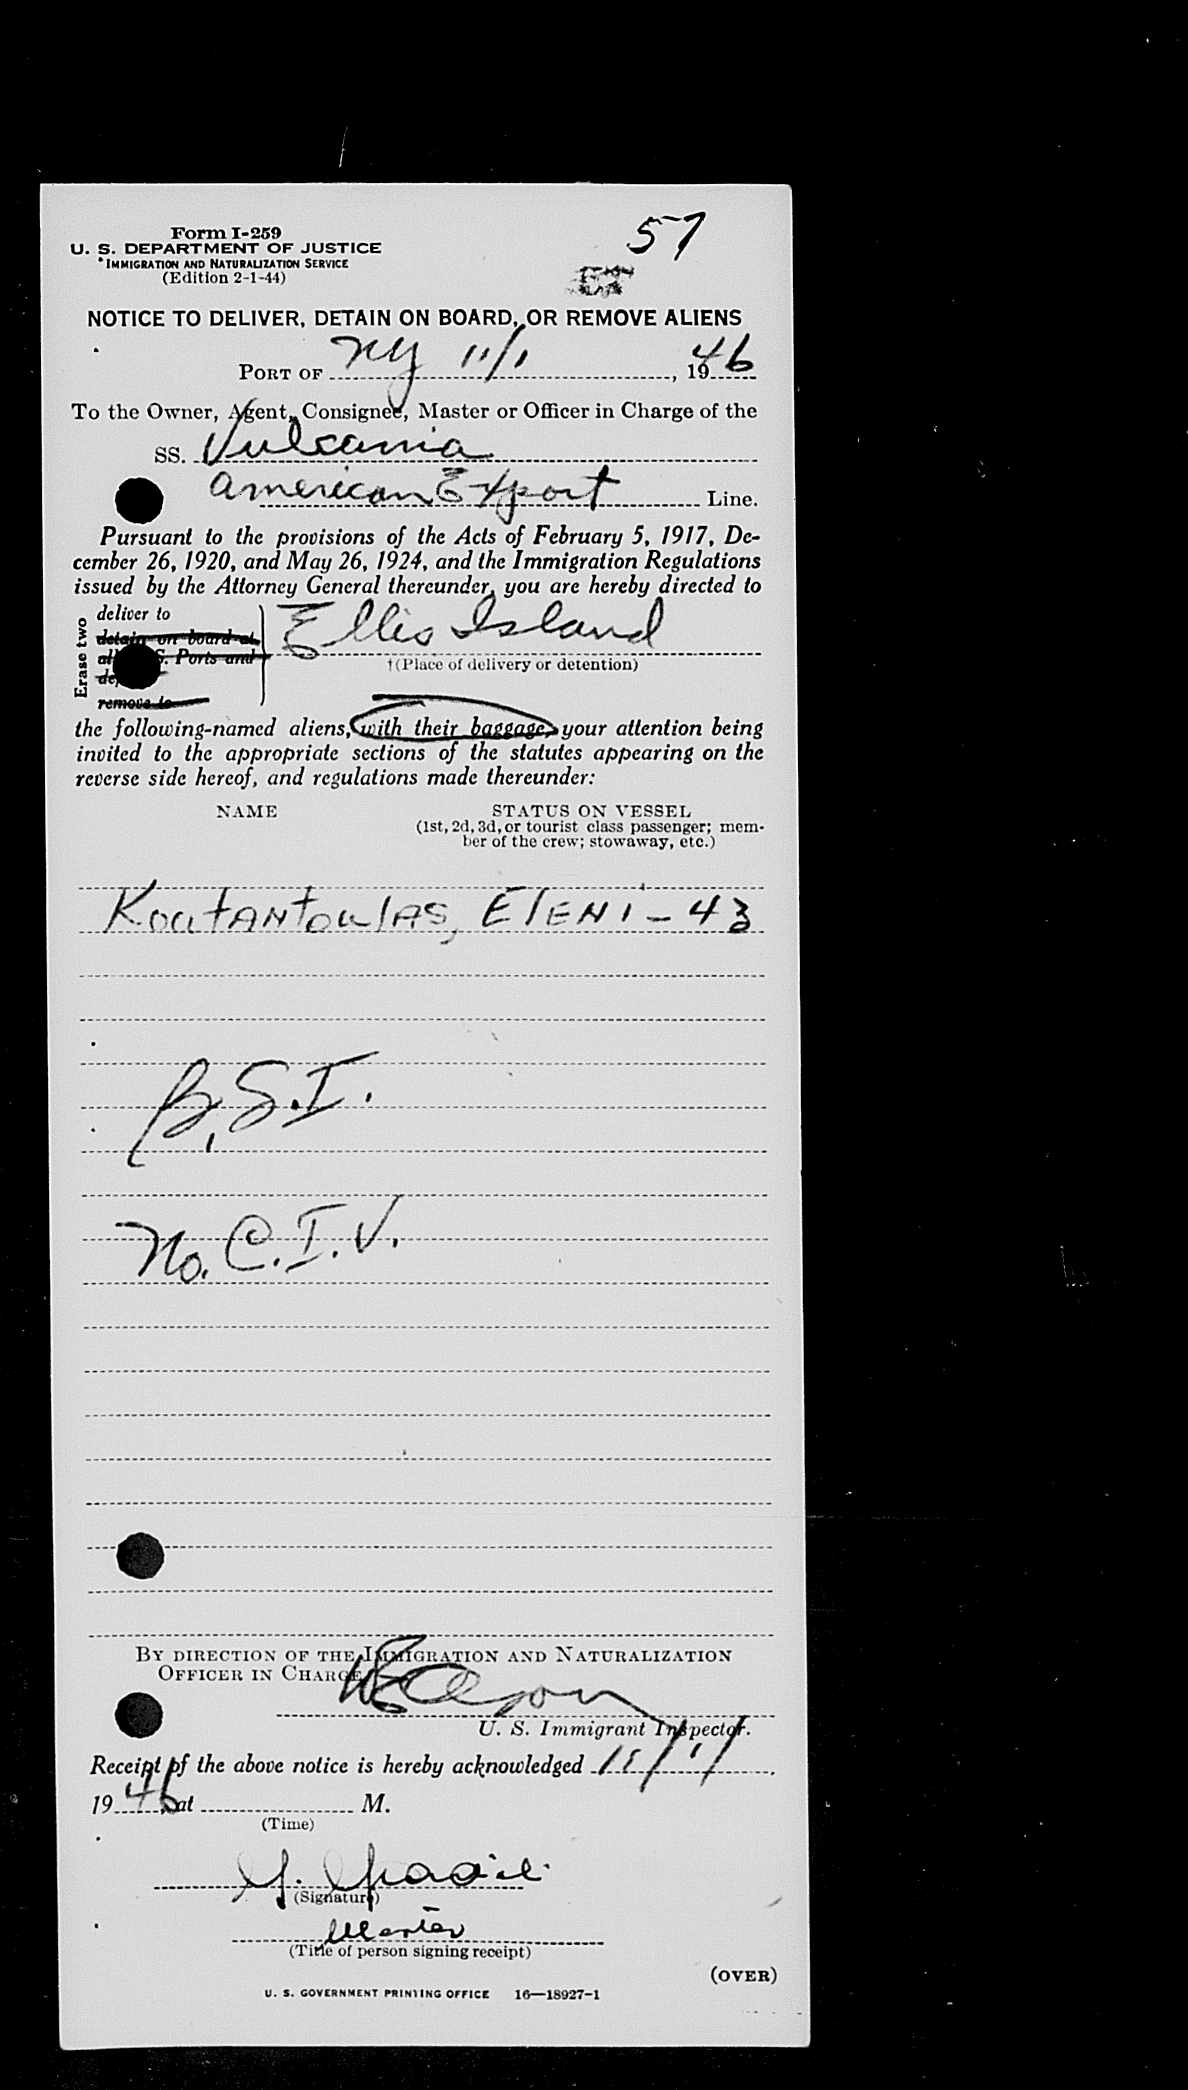 57
Form I-259
U. S. DEPARTMENT OF JUSTICE
IMMIGRATION AND NATURALIZATION SERVICE
(Edition 2-1-44)
NOTICE TO DELIVER, DETAIN ON BOARD, OR REMOVE ALIENS
PORT OF NY 11/1, 1946
To the Owner, Agent, Consignee, Master or Officer in Charge of the
SS. Vulcania
American Export Line.
Pursuant to the provisions of the Acts of February 5, 1917, De-
cember 26, 1920, and May 26, 1924, and the Immigration Regulations
issued by the Attorney General thereunder, you are hereby directed to
Erase two
deliver to
detain on board at
Ellis Island
S. Ports and
†(Place of delivery or detention)
remove to
the following-named aliens, with their baggage, your attention being
invited to the appropriate sections of the statutes appearing on the
reverse side hereof, and regulations made thereunder:
NAME STATUS ON VESSEL
(1st, 2d, 3d, or tourist class passenger; mem-
ber of the crew; stowaway, etc.)
KoutANTouLAS, ELENI - 43
B.S.I.
No. C.I.V.
BY DIRECTION OF THE IMMIGRATION AND NATURALIZATION
OFFICER IN CHARGE
U. S. Immigrant Inspector.
Receipt of the above notice is hereby acknowledged 11/1/
1946, at M.
(Time)
(Signature)
Master
(Title of person signing receipt)
(OVER)
U. S. GOVERNMENT PRINTING OFFICE 16—18927-1